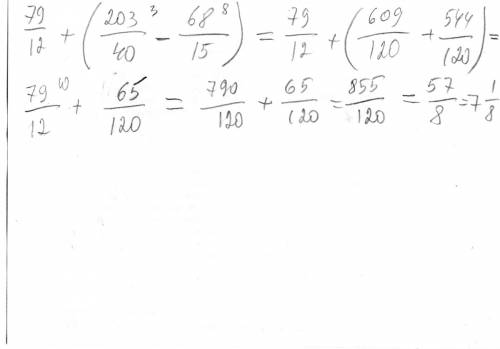 79/12 + (203³/40 − 68⁸/15) = 79/12 + (609/120 + 544/120) =
79¹⁰/12 + 65/120 = 790/120 + 65/120 = 855/120 = 57/8 = 7 1/8